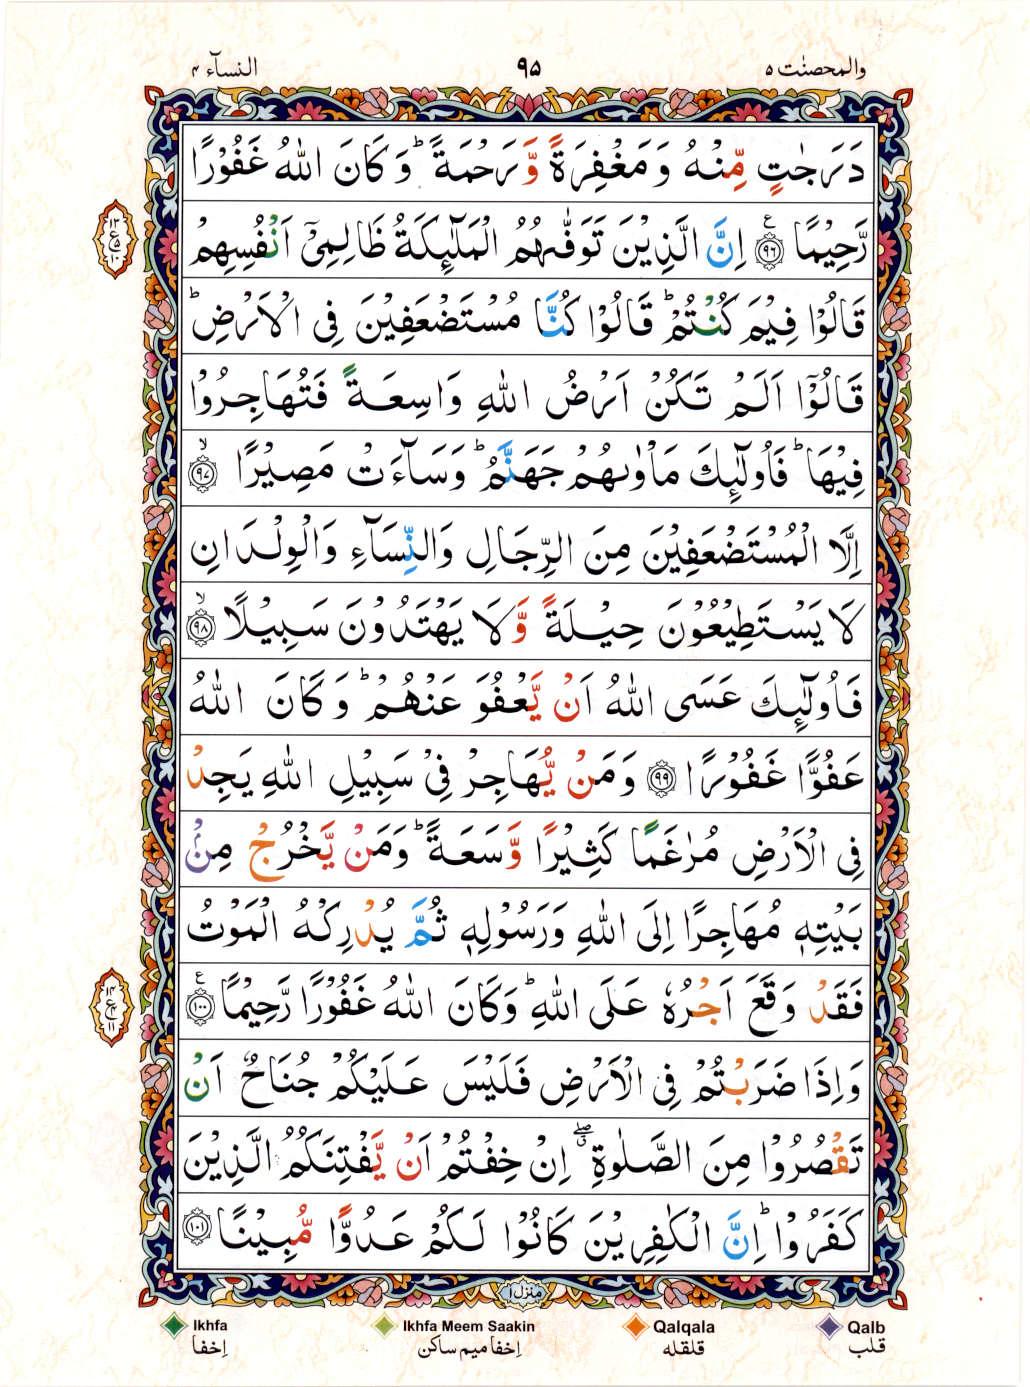 والمحصنٰت ۵
۹۵
النسآء ۴
دَرَجٰتٍ مِّنْهُ وَمَغْفِرَةً وَّرَحْمَةً ؕ وَكَانَ اللّٰهُ غَفُوْرًا
رَّحِيْمًا ﴿۹۶﴾ ع اِنَّ الَّذِيْنَ تَوَفّٰىهُمُ الْمَلٰٓئِكَةُ ظَالِمِيْۤ اَنْفُسِهِمْ
قَالُوْا فِيْمَ كُنْتُمْ ؕ قَالُوْا كُنَّا مُسْتَضْعَفِيْنَ فِى الْاَرْضِ ؕ
قَالُوْۤا اَلَمْ تَكُنْ اَرْضُ اللّٰهِ وَاسِعَةً فَتُهَاجِرُوْا
فِيْهَا ؕ فَاُولٰٓئِكَ مَاْوٰىهُمْ جَهَنَّمُ ؕ وَسَآءَتْ مَصِيْرًا ۙ﴿۹۷﴾
اِلَّا الْمُسْتَضْعَفِيْنَ مِنَ الرِّجَالِ وَالنِّسَآءِ وَالْوِلْدَانِ
لَا يَسْتَطِيْعُوْنَ حِيْلَةً وَّلَا يَهْتَدُوْنَ سَبِيْلًا ۙ﴿۹۸﴾
فَاُولٰٓئِكَ عَسَى اللّٰهُ اَنْ يَّعْفُوَ عَنْهُمْ ؕ وَكَانَ اللّٰهُ
عَفُوًّا غَفُوْرًا ﴿۹۹﴾ وَمَنْ يُّهَاجِرْ فِيْ سَبِيْلِ اللّٰهِ يَجِدْ
فِى الْاَرْضِ مُرٰغَمًا كَثِيْرًا وَّسَعَةً ؕ وَمَنْ يَّخْرُجْ مِنْۢ
بَيْتِهٖ مُهَاجِرًا اِلَى اللّٰهِ وَرَسُوْلِهٖ ثُمَّ يُدْرِكْهُ الْمَوْتُ
فَقَدْ وَقَعَ اَجْرُهٗ عَلَى اللّٰهِ ؕ وَكَانَ اللّٰهُ غَفُوْرًا رَّحِيْمًا ﴿۱۰۰﴾ ع
وَاِذَا ضَرَبْتُمْ فِى الْاَرْضِ فَلَيْسَ عَلَيْكُمْ جُنَاحٌ اَنْ
تَقْصُرُوْا مِنَ الصَّلٰوةِ ۖ اِنْ خِفْتُمْ اَنْ يَّفْتِنَكُمُ الَّذِيْنَ
كَفَرُوْا ؕ اِنَّ الْكٰفِرِيْنَ كَانُوْا لَكُمْ عَدُوًّا مُّبِيْنًا ﴿۱۰۱﴾
منزل ۱
Ikhfa Ikhfa Meem Saakin Qalqala Qalb
إخفا إخفا ميم ساكن قلقله قلب